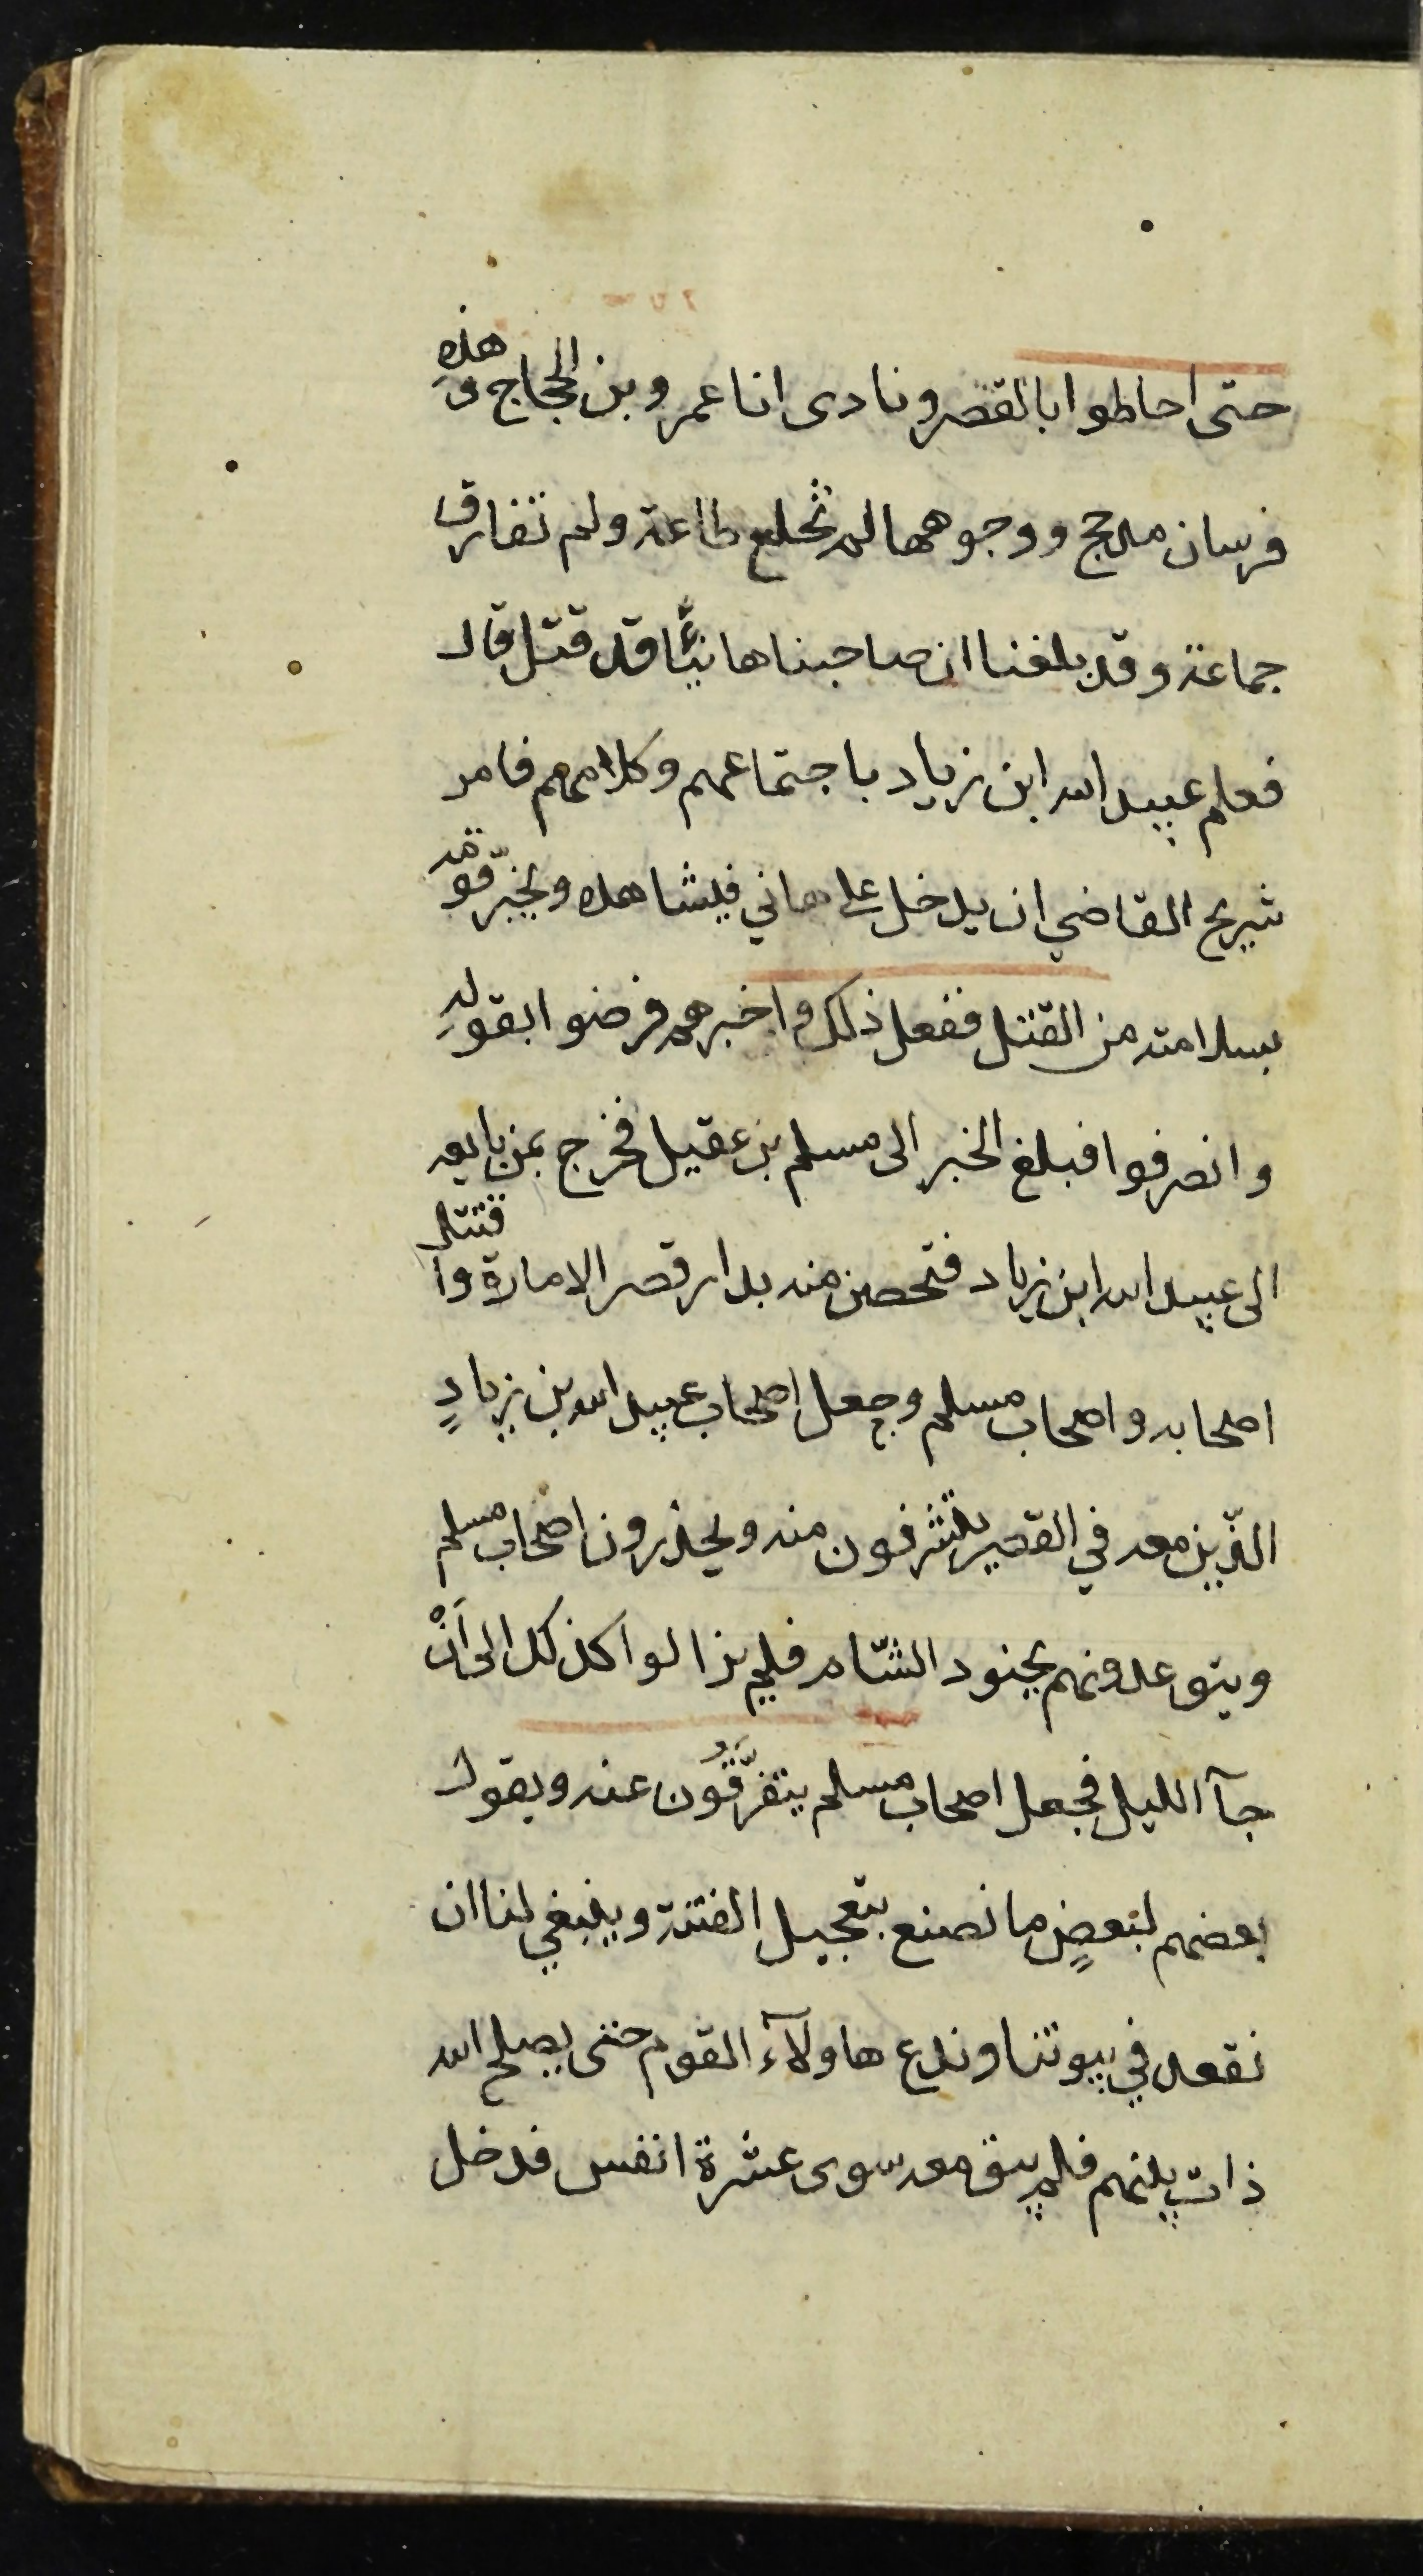 حتى احاطوا بالقصر ونادى انا عمرو بن الحجاج وهذه
فرسان مذحج ووجوهها لم تخلع طاعة ولم تفارق
جماعة وقد بلغنا ان صاحبنا هانيًا قد قتل قال
فعلم عبيد الله ابن زياد باجتماعهم وكلامهم فامر
شريح القاضي ان يدخل على هاني فيشاهده ويخبّر قومه
بسلامته من القتل ففعل ذلك واخبرهم فرضوا بقولهِ
وانصرفوا فبلغ الخبر الى مسلم بن عقيل فخرج بمن بايعه
الى عبيد الله ابن زياد فتحصن منه بدار قصر الامارة واقتتل
اصحابه واصحاب مسلم وجعل اصحاب عبيد الله بن زيادٍ
الذّين معه في القصر يتشرفون منه ويحذرون اصحاب مسلم
ويتوعدونهم بجنود الشّام فلم يزالوا كذلك الى اَنْ
جآ الليل فجعل اصحاب مسلم يتفرَّقُون عنه ويقول
بعضهم لبعضٍ ما نصنع بتعجيل الفتنة وينبغي لنا ان
نقعد في بيوتنا وندع هاولآء القوم حتى يصلح الله
ذات بينهم فلم يبق معه سوى عشرة انفس فدخل